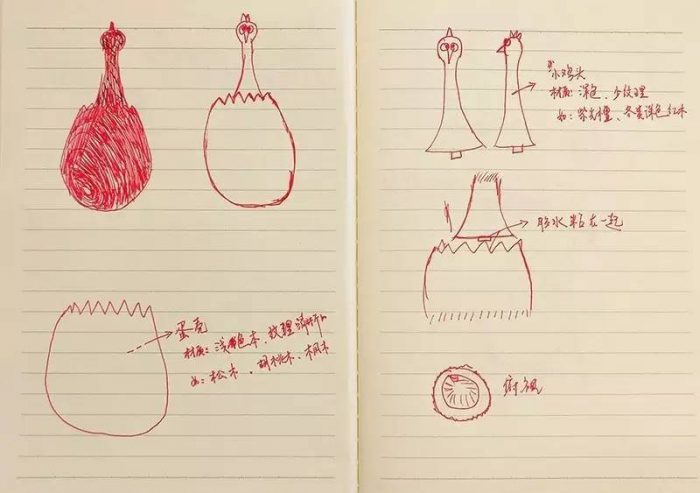 蛋壳
材质：浅色木，纹理清晰
如：松木、胡桃木、枫木
小鸡头
材质：深色、少纹理
如：紫光檀、各类深色红木
胶水粘在一起
俯视